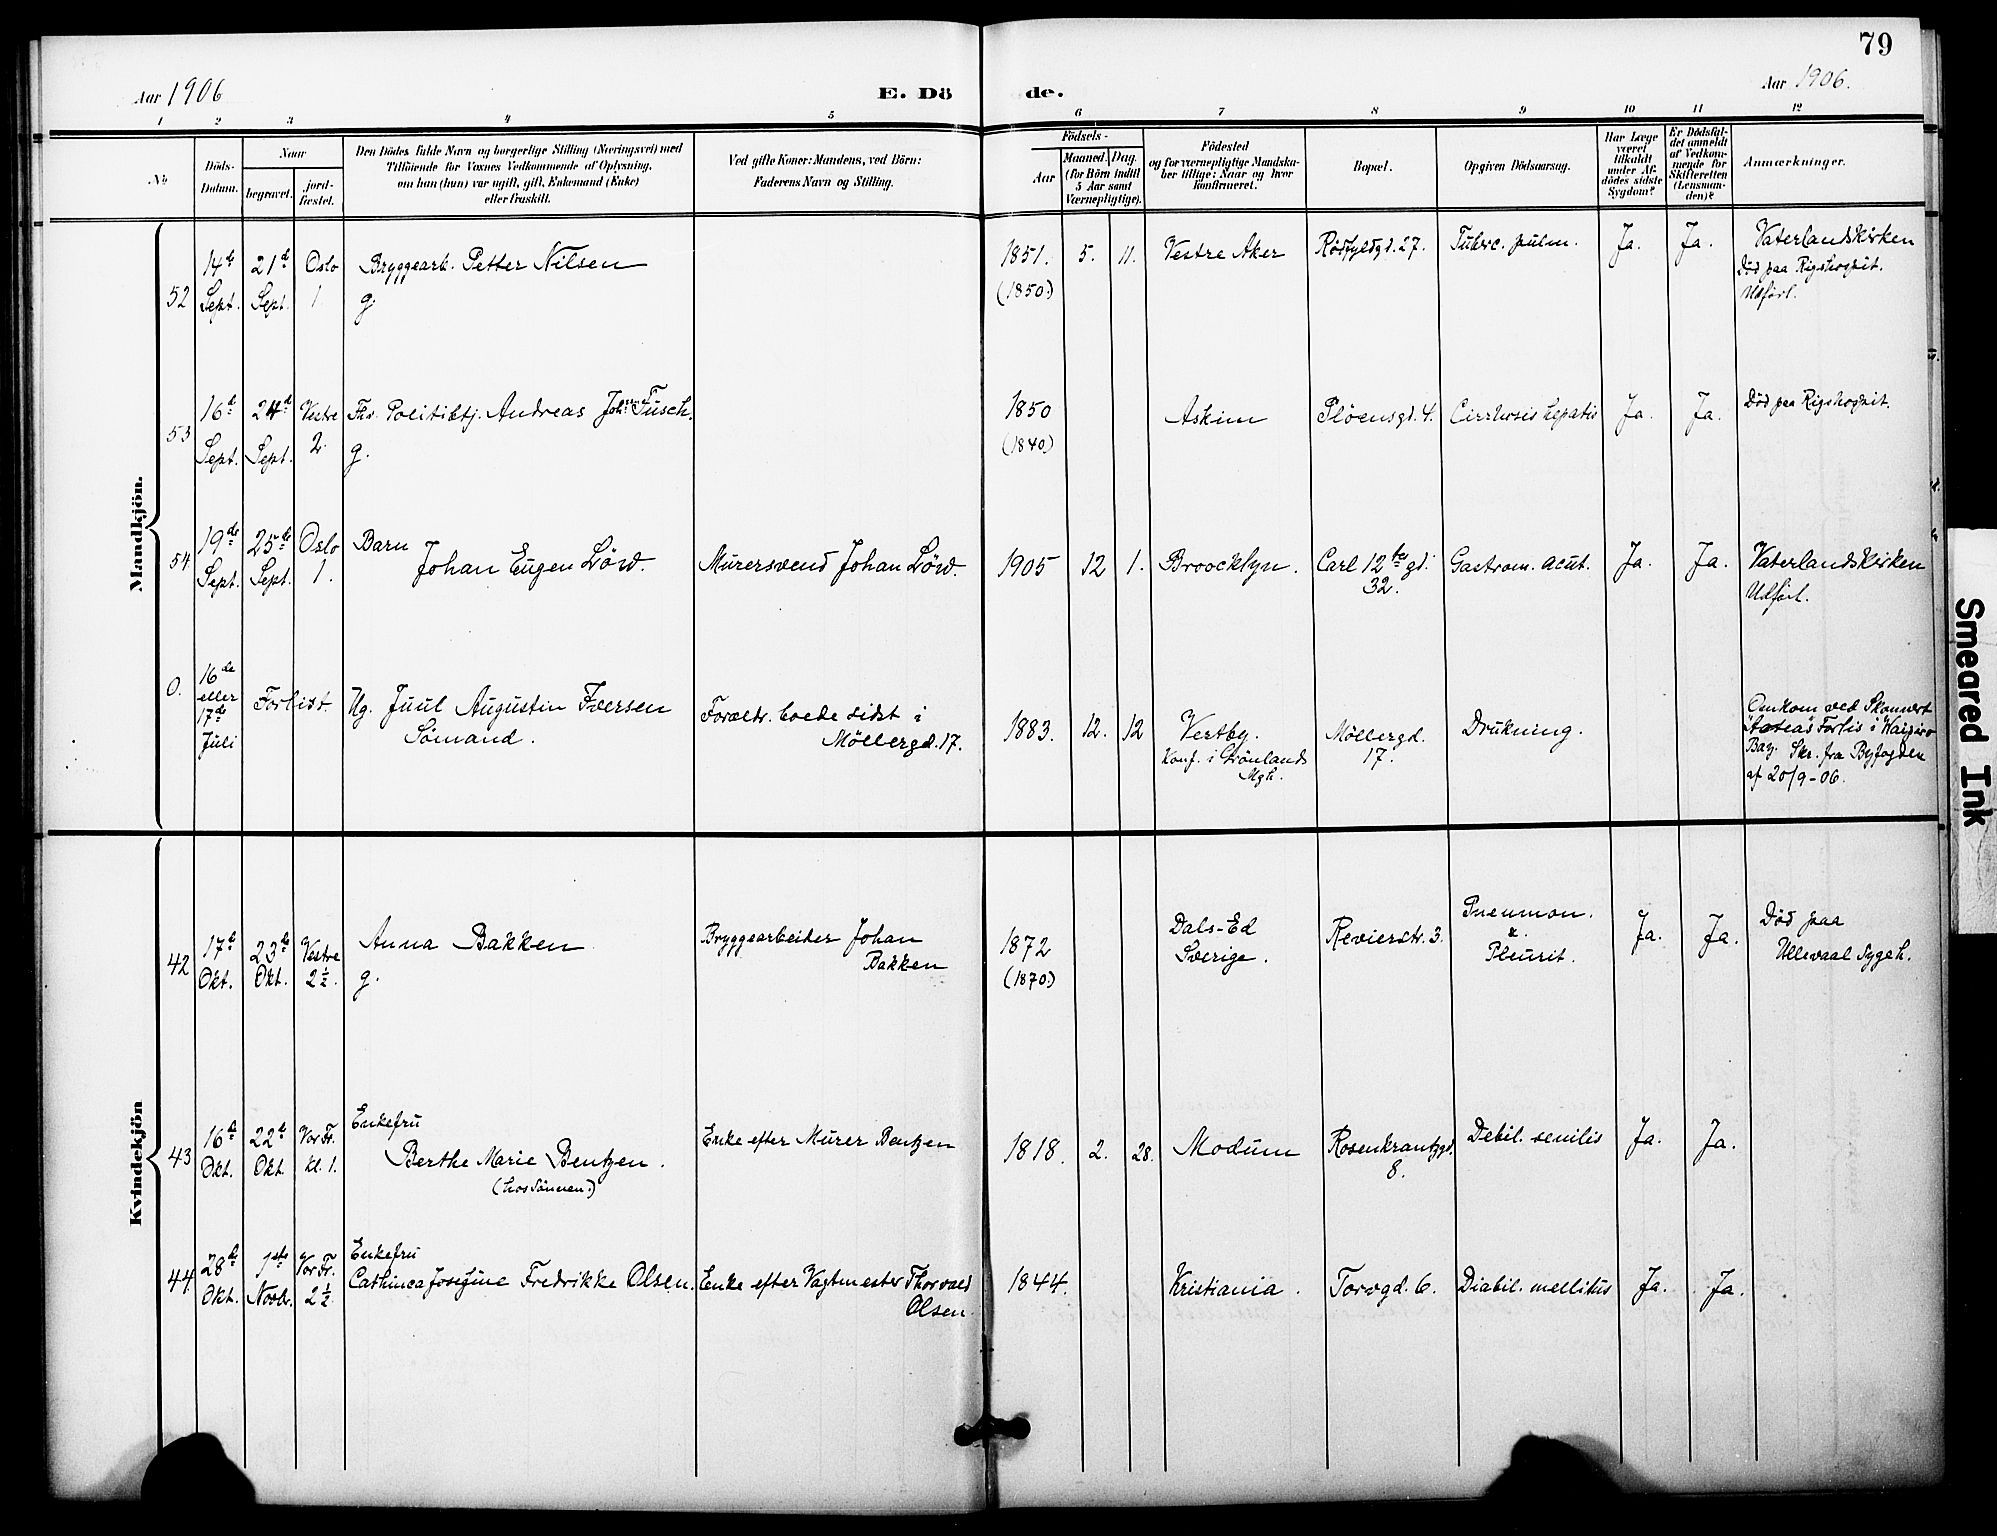 79
Aar 1906
E. Dö
de.
Aar 1906.
1 2 3 4 5 6 7 8 9 10 11 12
No
Döds-
Datum.
Naar
begravet.
jord-
fæstet.
Den Dödes fulde Navn og borgerlige Stilling (Næringsvei) med
Tilföiende for Voxnes Vedkommende af Oplysning,
om han (hun) var ugift, gift, Enkemand (Enke)
eller fraskilt.
Ved gifte Koner: Mandens, ved Börn:
Faderens Navn og Stilling.
Födsels-
Aar
Maaned. Dag.
(for Börn indtil
5 Aar samt
Værnepligtige).
Födested
og for værnepligtige Mandska-
ber tillige: Naar og hvor
konfirmeret.
Bopæl.
Opgiven Dödsaarsag.
Har Læge
været
tilkaldt
under Af-
dödes sidste
Sygdom?
Er Dödsfal-
det anmeldt
af Vedkom-
mende for
Skifteretten
(Lensman-
den)?
Anmærkninger.
Mandkjön.
52
14de
Sept.
21de
Sept.
Oslo
1.
Bryggearb. Petter Nilsen
g.
1851.
(1850.)
5.
11.
Vestre Aker
Rödfyldgd. 27.
Tuberc. pulm.
Ja.
Ja.
Vaterlandskirken
Död paa Rigshospit.
Udförl.
53
16de
Sept.
24de
Sept.
Vestre
2.
Fhv. Politibtj. Andreas Tusch.
g.
1850
(1840.)
Askim
Plöensgd. 4.
Cirrhosis hepatis
Ja.
Ja.
Död paa Rigshospit.
54
19de
Sept.
25de
Sept.
Oslo
1.
Barn
Johan Eugen Löw.
Murersvend Johan Löw.
1905
12
1.
Broocklyn.
Carl 12tes gd.
32.
Gastrom. acut.
Ja.
Ja.
Vaterlandskirken
Udförl.
0.
16de
eller
17de
Juli
Forlist.
Ug. Juul Augustin Iversen
Sömand.
Forældr. boede sidst i
Möllergd. 17.
1883.
12.
12
Vestby.
Konf. i Grönlands
Mgh.
Möllergd.
17.
Drukning.
Omkom ved Skonnert
Forlis i
Bay. Skr. fra Byfogden
af 20/9-06.
Kvindekjön
42
17de
Okt.
23de
Okt.
Vestre
2½.
Anna Bakken
g.
Bryggearbeider Johan
Bakken
1872
(1870.)
Dals-Ed
Sverige.
Revierstr. 3.
Pneumon.
&
Pleurit.
Ja.
Ja.
Död paa
Ullevaal Sygeh.
43
16de
Okt.
22de
Okt.
Vor Fr.
kl. 1.
Enkefru
Berthe Marie Bentzen.
(hos Sönnen.)
Enke efter Murer Bentzen
1818.
2.
28.
Modum
Rosenkrantzgd.
8.
Debil. senilis
Ja.
Ja.
44
28de
Okt.
1ste
Novbr.
Vor Fr.
2½
Enkefru
Cathinca Josefine Fredrikke Olsen.
Enke efter Vagtmester Thorvald
Olsen.
1844.
Kristiania.
Torvgd. 6.
Diabil. mellitus
Ja.
Ja.
Smeared Ink